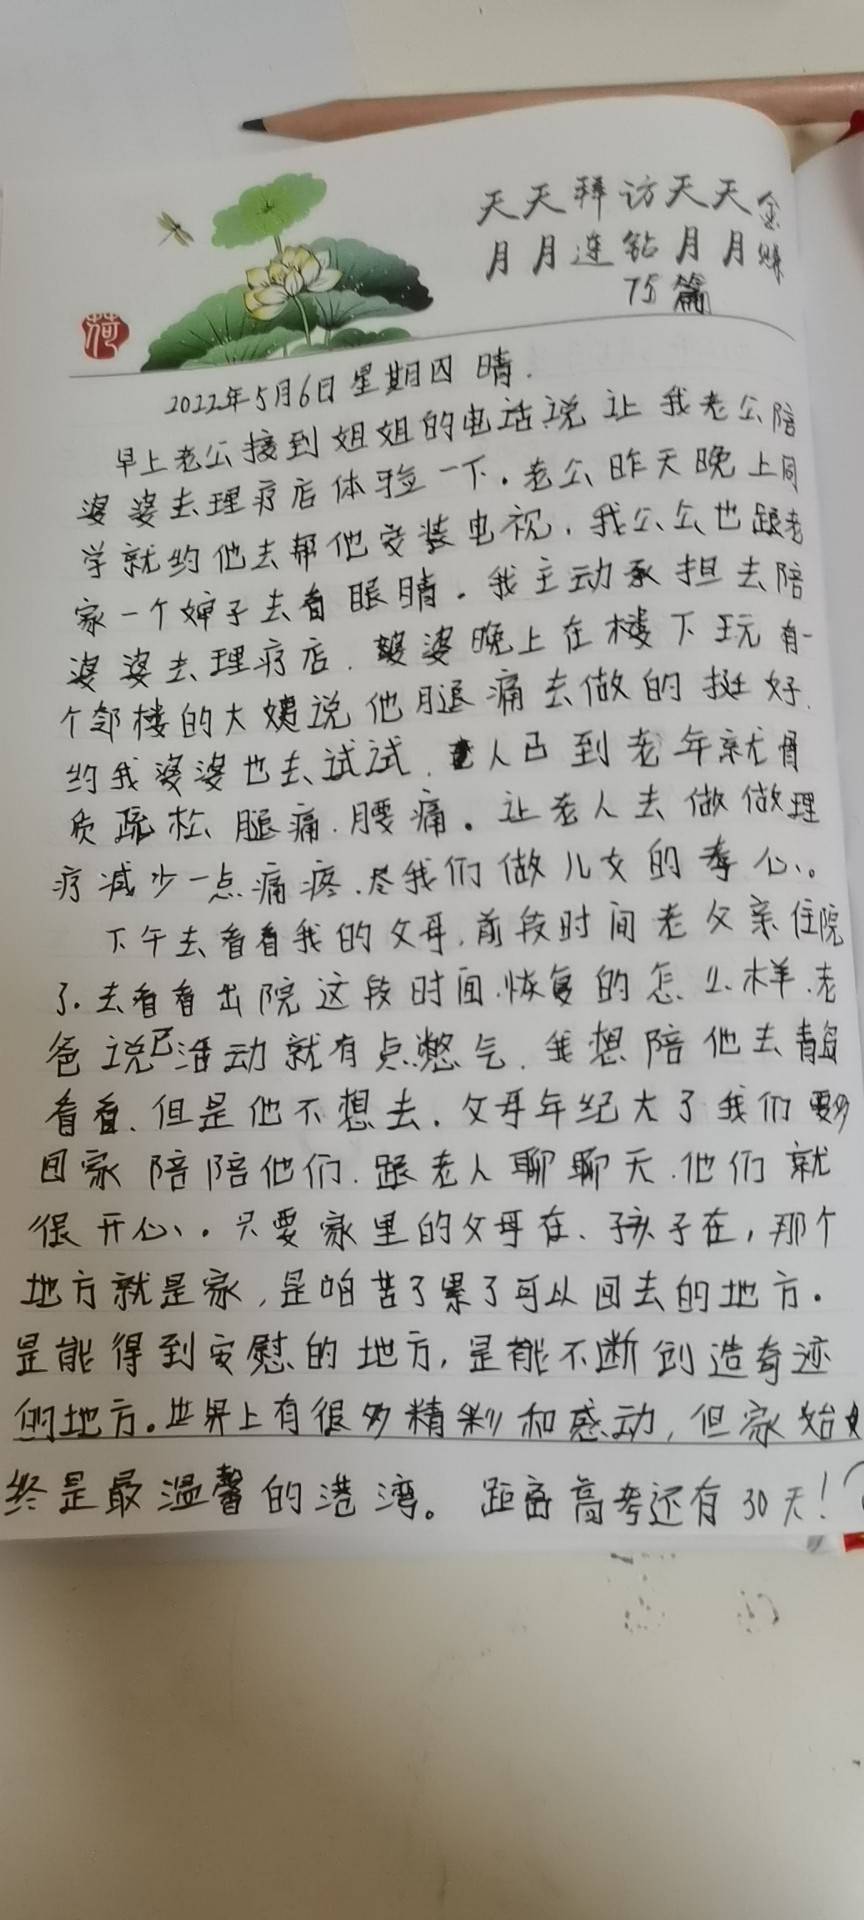 天天拜访天天金
月月连钻月月赚
75篇
荷
2022年5月6日星期四 晴.
早上老公接到姐姐的电话说让我老公陪
婆婆去理疗店体验一下。老公昨天晚上同
学就约他去帮他安装电视.我公公也跟老
家一个婶子去看眼睛。我主动承担去陪
婆婆去理疗店.婆婆晚上在楼下玩有一
个邻楼的大姨说他腿痛去做的挺好.
约我婆婆也去试试.人已到老年就骨
质疏松、腿痛.腰痛。让老人去做做理
疗减少一点痛疼.尽我们做儿女的孝心。
下午去看看我的父母.前段时间老父亲住院
了.去看看出院这段时间.恢复的怎么样.老
爸说已活动就有点憋气.我想陪他去
看看.但是他不想去.父母年纪大了我们要多
回家陪陪他们.跟老人聊聊天.他们就
很开心。只要家里的父母在、孩子在,那个
地方就是家,是咱苦了累了可以回去的地方。
是能得到安慰的地方,是能不断创造奇迹
的地方。世界上有很多精彩和感动,但家始
终是最温馨的港湾。 距离高考还有30天!